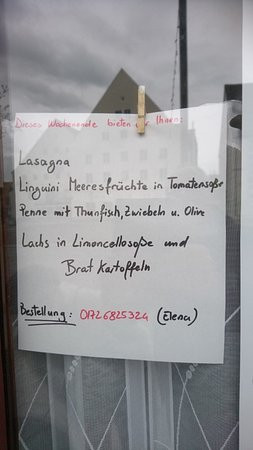 Dieses Wochenende bieten wir Ihnen:
Lasagna
Linguini Meeresfrüchte in Tomatensoße
Penne mit Thunfisch, Zwiebeln u. Olive
Lachs in Limoncellosoße und
Brat Kartoffeln
Bestellung: 01726825324 (Elena)